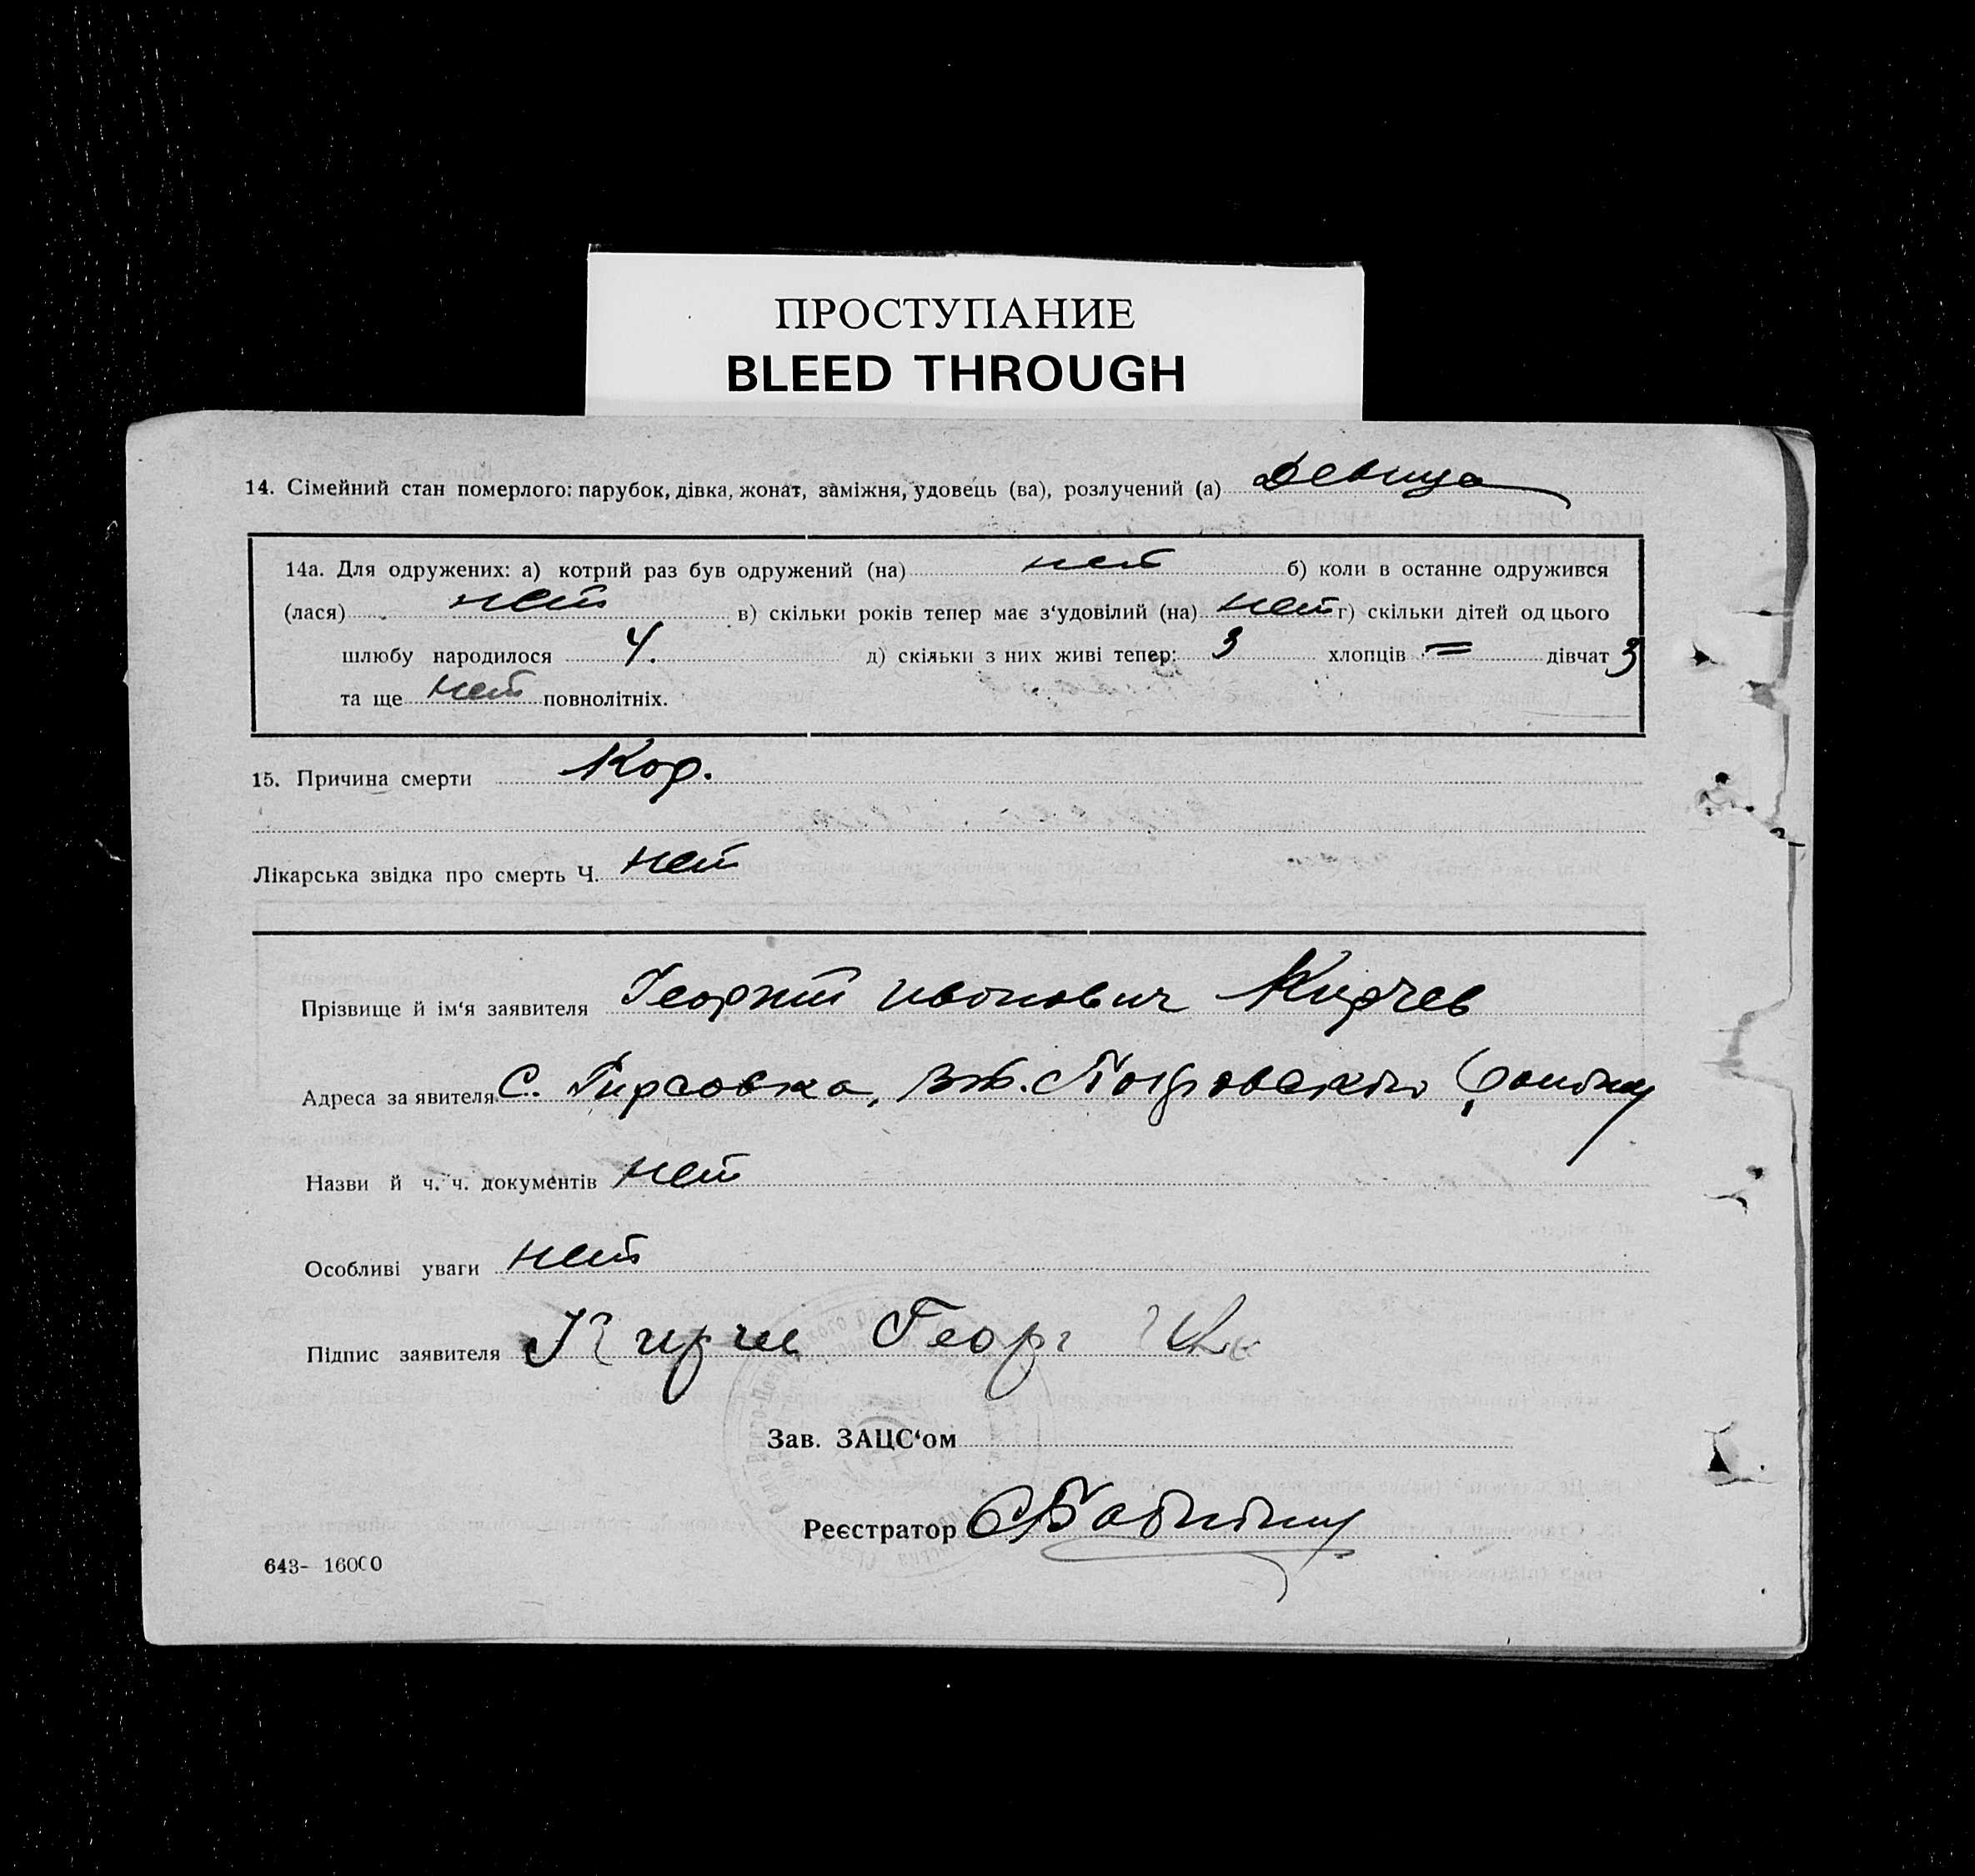 ПРОСТУПАНИЕ
BLEED THROUGH
14. Сімейний стан померлого: парубок, дівка, жонат, заміжня, удовець (ва), розлучений (а) Девица
14а. Для одружених: а) котрий раз був одружений (на) нет б) коли в останне одружився
(лася) нет в) скільки років тепер має з‘удовілий (на) нет г) скільки дітей од цього
шлюбу народилося 4. д) скільки з них живі тепер: 3 хлопців = дівчат 3
та ще нет повнолітніх.
15. Причина смерти Кор.
Лікарська звідка про смерть Ч. нет
Прізвище й ім‘я заявителя Георгий Иванович Кирчев
Адреса заявителя С. Гирсовка,
Назви й ч. ч. документів нет
Особливі уваги нет
Підпис заявителя Кирче Георг
Зав. ЗАЦС‘ом
Реєстратор
643- 16000